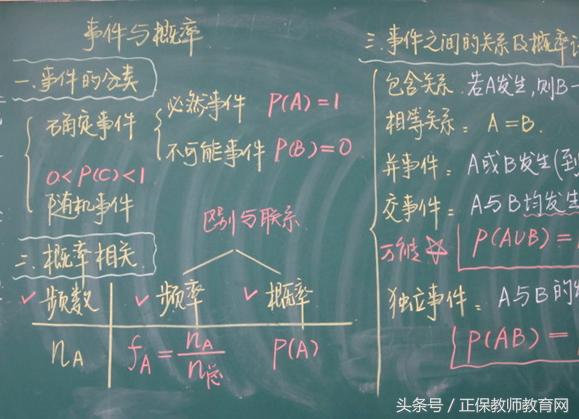 事件与概率
一.事件的分类
确定事件
必然事件 P(A)=1
不可能事件 P(B)=0
0<P(C)<1
随机事件
二.概率相关
区别与联系
✓频数 ✓频率 ✓概率
nA fA=nA/n总 P(A)
三.事件之间的关系及概率
包含关系.若A发生,则B一
相等关系: A=B.
并事件: A或B发生(到
交事件: A与B均发生
万能☆ P(AUB)=
独立事件: A与B的
P(AB)=
头条号 / 正保教师教育网